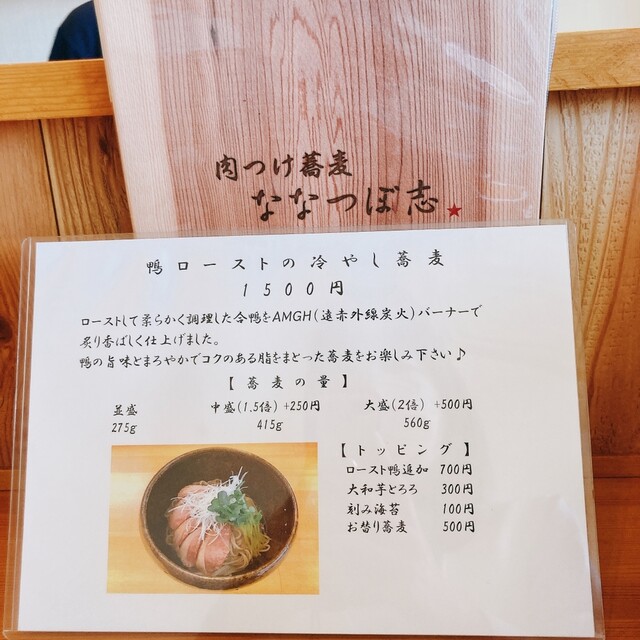 肉つけ蕎麦
ななつぼ志★
鴨ローストの冷やし蕎麦
1500円
ローストして柔らかく調理した合鴨をAMGH(遠赤外線炭火)バーナーで
炙り香ばしく仕上げました。
鴨の旨味とまろやかでコクのある脂をまとった蕎麦をお楽しみ下さい♪
【蕎麦の量】
並盛 中盛(1.5倍) +250円 大盛(2倍) +500円
275g 415g 560g
【トッピング】
ロースト鴨追加 700円
大和芋とろろ 300円
刻み海苔 100円
お替り蕎麦 500円